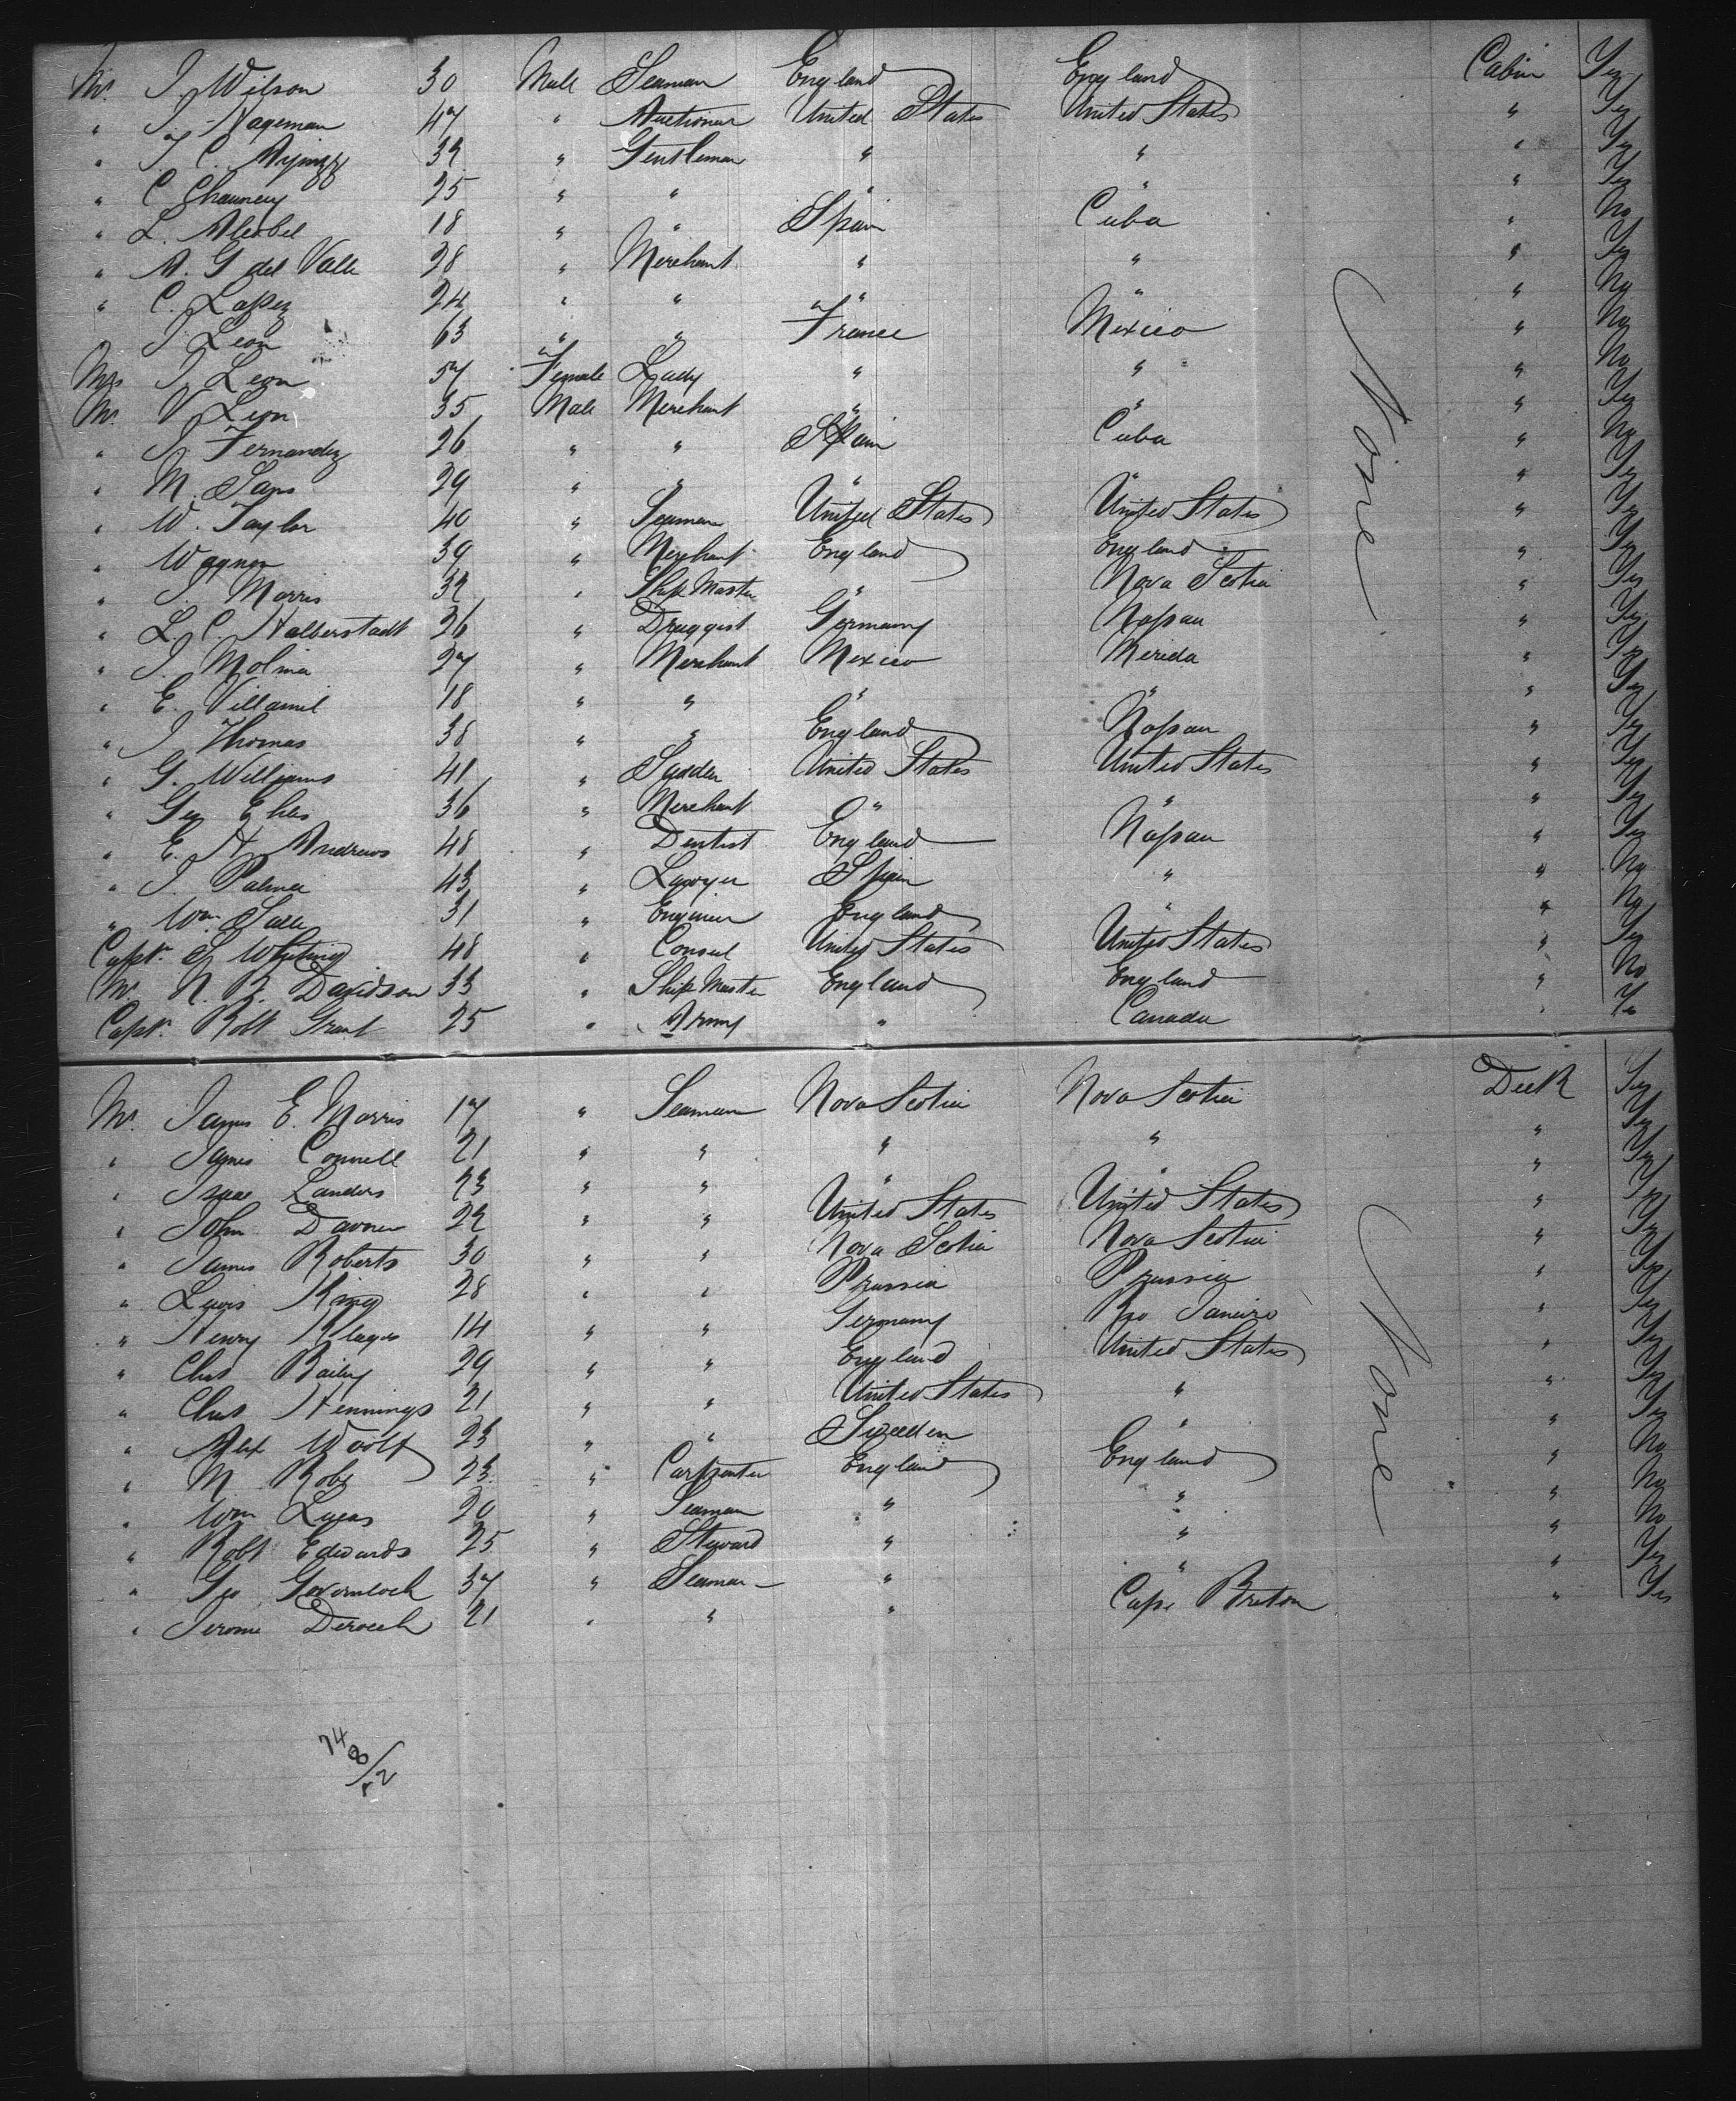 Mr. J. Wilson 30 Male Seaman England England Cabin Yes
" J. Hageman 47 " Auctioner United States United States " Yes
" J. C. 32 " Gentleman " " " Yes
" C. Chauncey 25 " " " " " Yes
" L. 18 " " Spain Cuba " No
" A. G del Valle 28 " Merchant " " " Yes
" C. Lopez 24 " " " " " No
" J. Leon 63 " " France Mexico " No
Mrs J. Leon 57 Female Lady " " " No
Mr. V. Leon 35 Male Merchant " " " Yes
" J. Fernandez 26 " " Spain Cuba " No
" M. Sans 29 " " " " " Yes
" W. Taylor 40 " Seaman United States United States " Yes
" Wagner 39 " Merchant England England " Yes
" J. Morris 32 " Ship Master " Nova Scotia " Yes
" L. C. Halberstadt 26 " Druggist Germany Nassau " Yes
" J. Molina 27 " Merchant Mexico Merida " Yes
" E. Villamil 18 " " " " " Yes
" J. Thomas 38 " " England Nassau " Yes
" G. Williams 41 " Saddler United States United States " Yes
" Geo Elias 36 " Merchant " " " Yes
" E. H. Andrews 48 " Dentist England Nassau " Yes
" J. Palma 43 " Lawyer Spain " " No
" Wm. 31 " Engineer England " " No
Capt. S. Whiting 48 " Consul United States United States " Yes
Mr. N. B. Davidson 33 " Ship Master England England " No
Capt. Robt Grant 25 " Army " Canada " Yes
None
Mr. James E. Morris 17 " Seaman Nova Scotia Nova Scotia Deck Yes
" James Connell 21 " " " " " Yes
" Isaac Landers 23 " " " " " Yes
" John 22 " " United States United States " Yes
" James Roberts 30 " " Nova Scotia Nova Scotia " Yes
" Lewis King 28 " " Prussia Prussia " Yes
" Henry Klages 14 " " Germany Rio Janeiro " Yes
" Chas Bailey 29 " " England United States " Yes
" Chas Hennings 21 " " United States " " Yes
" Alex Woolf 23 " " Sweeden " " Yes
" M. Roby 23 " Carpenter England England " No
" Wm Lucas 20 " Seaman " " " No
" Robt Edwards 25 " Steward " " " No
" Geo 37 " Seaman " " " Yes
" Jerome Deroech 21 " " " Cape Breton " Yes
None
74
8/72